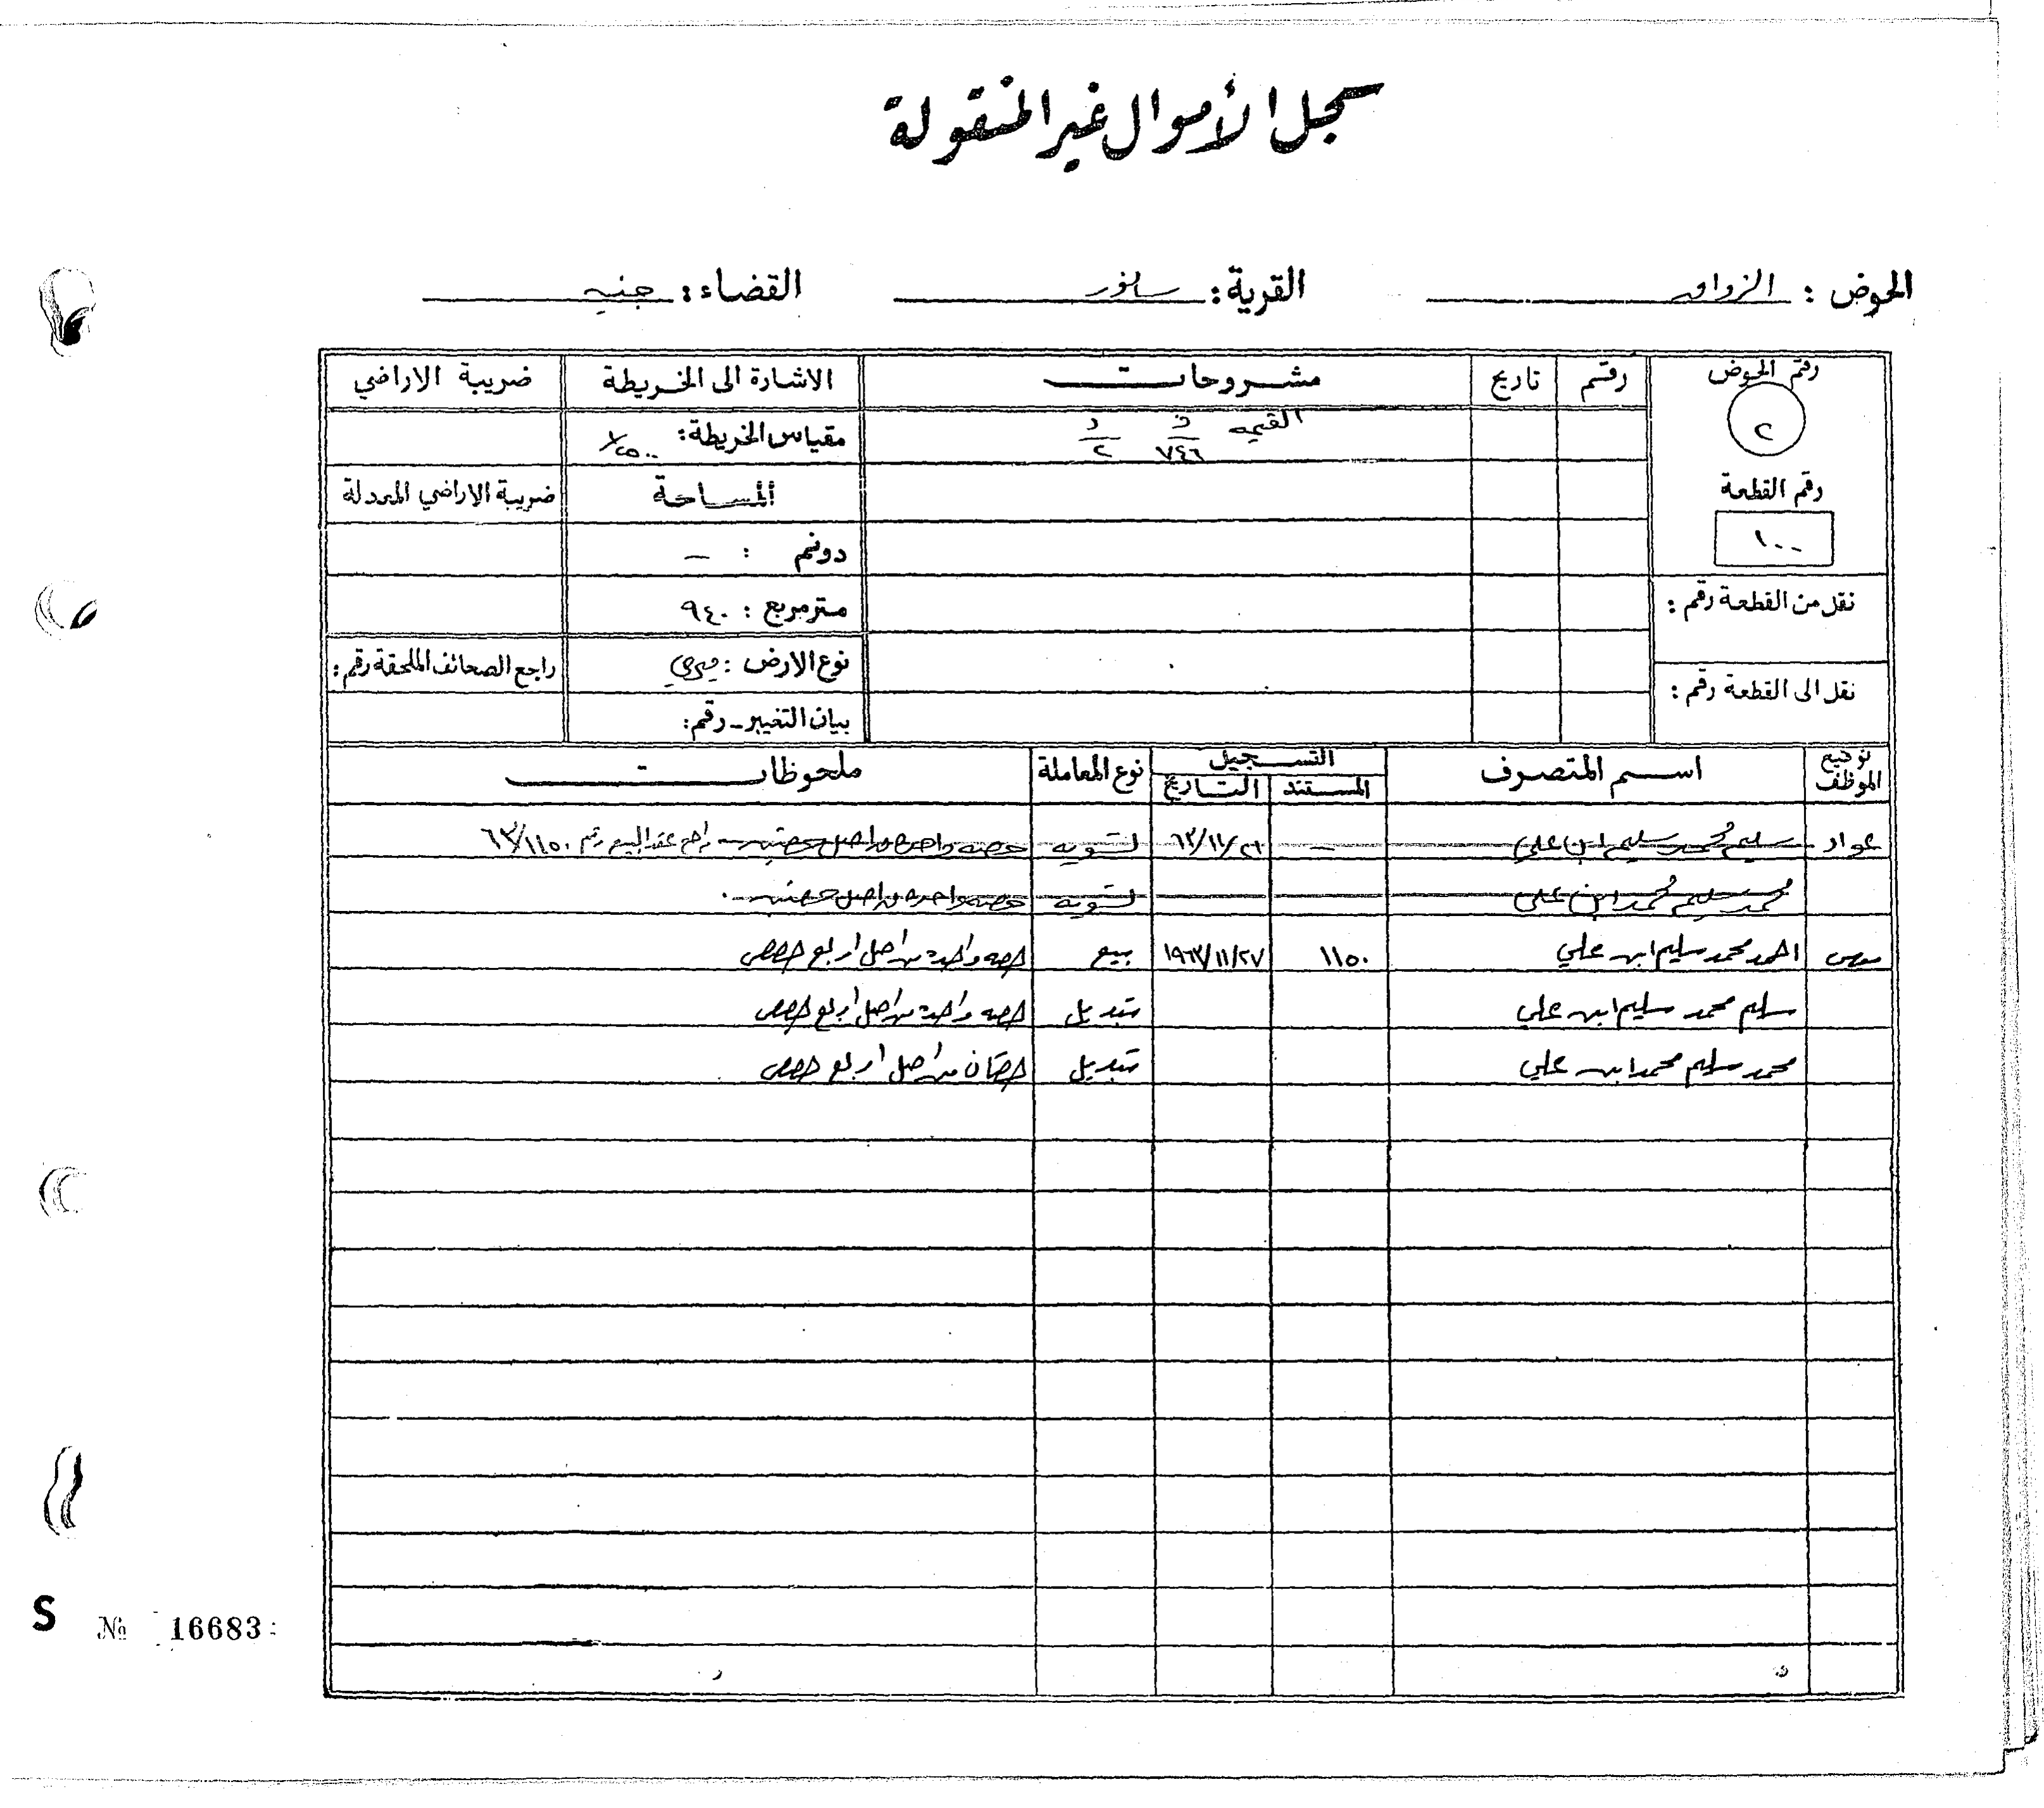 سجل الأموال غير المنقولة
الحوض : الزواق القرية : سانور القضاء : جنين
رقم الحوض رقم تاريخ مشروحات الاشارة الى الخريطة ضريبة الاراضي
٢ القيمه ف ٧٤٦ د ٢ مقياس الخريطة : ١/٢٥٠٠
رقم القطعة المساحة ضريبة الاراضي المعدلة
١٠٠ دونم : —
نقل من القطعة رقم : متر مربع : ٩٤٠
نوع الارض : ميري راجع الصحائف الملحقة رقم :
نقل الى القطعة رقم : بيان التغيير - رقم :
توقيع الموظف اسم المتصرف التسجيل المستند التاريخ نوع المعاملة ملحوظات
عواد سليم محمد سليم ابن علي — ٦٣/١١/٢٦ تسويه حصه واحده من اصل حصتين راجع عقد البيع رقم ٦٣/١١٥٠
محمد سليم محمد ابن علي تسويه حصه واحده من اصل حصتين
احمد محمد سليم ابن علي ١١٥٠ ١٩٦٣/١١/٢٧ بيع حصه واحده من اصل اربع حصص
سليم محمد سليم ابن علي تبديل حصه واحده من اصل اربع حصص
محمد سليم محمد ابن علي تبديل حصتان من اصل اربع حصص
S № 16683